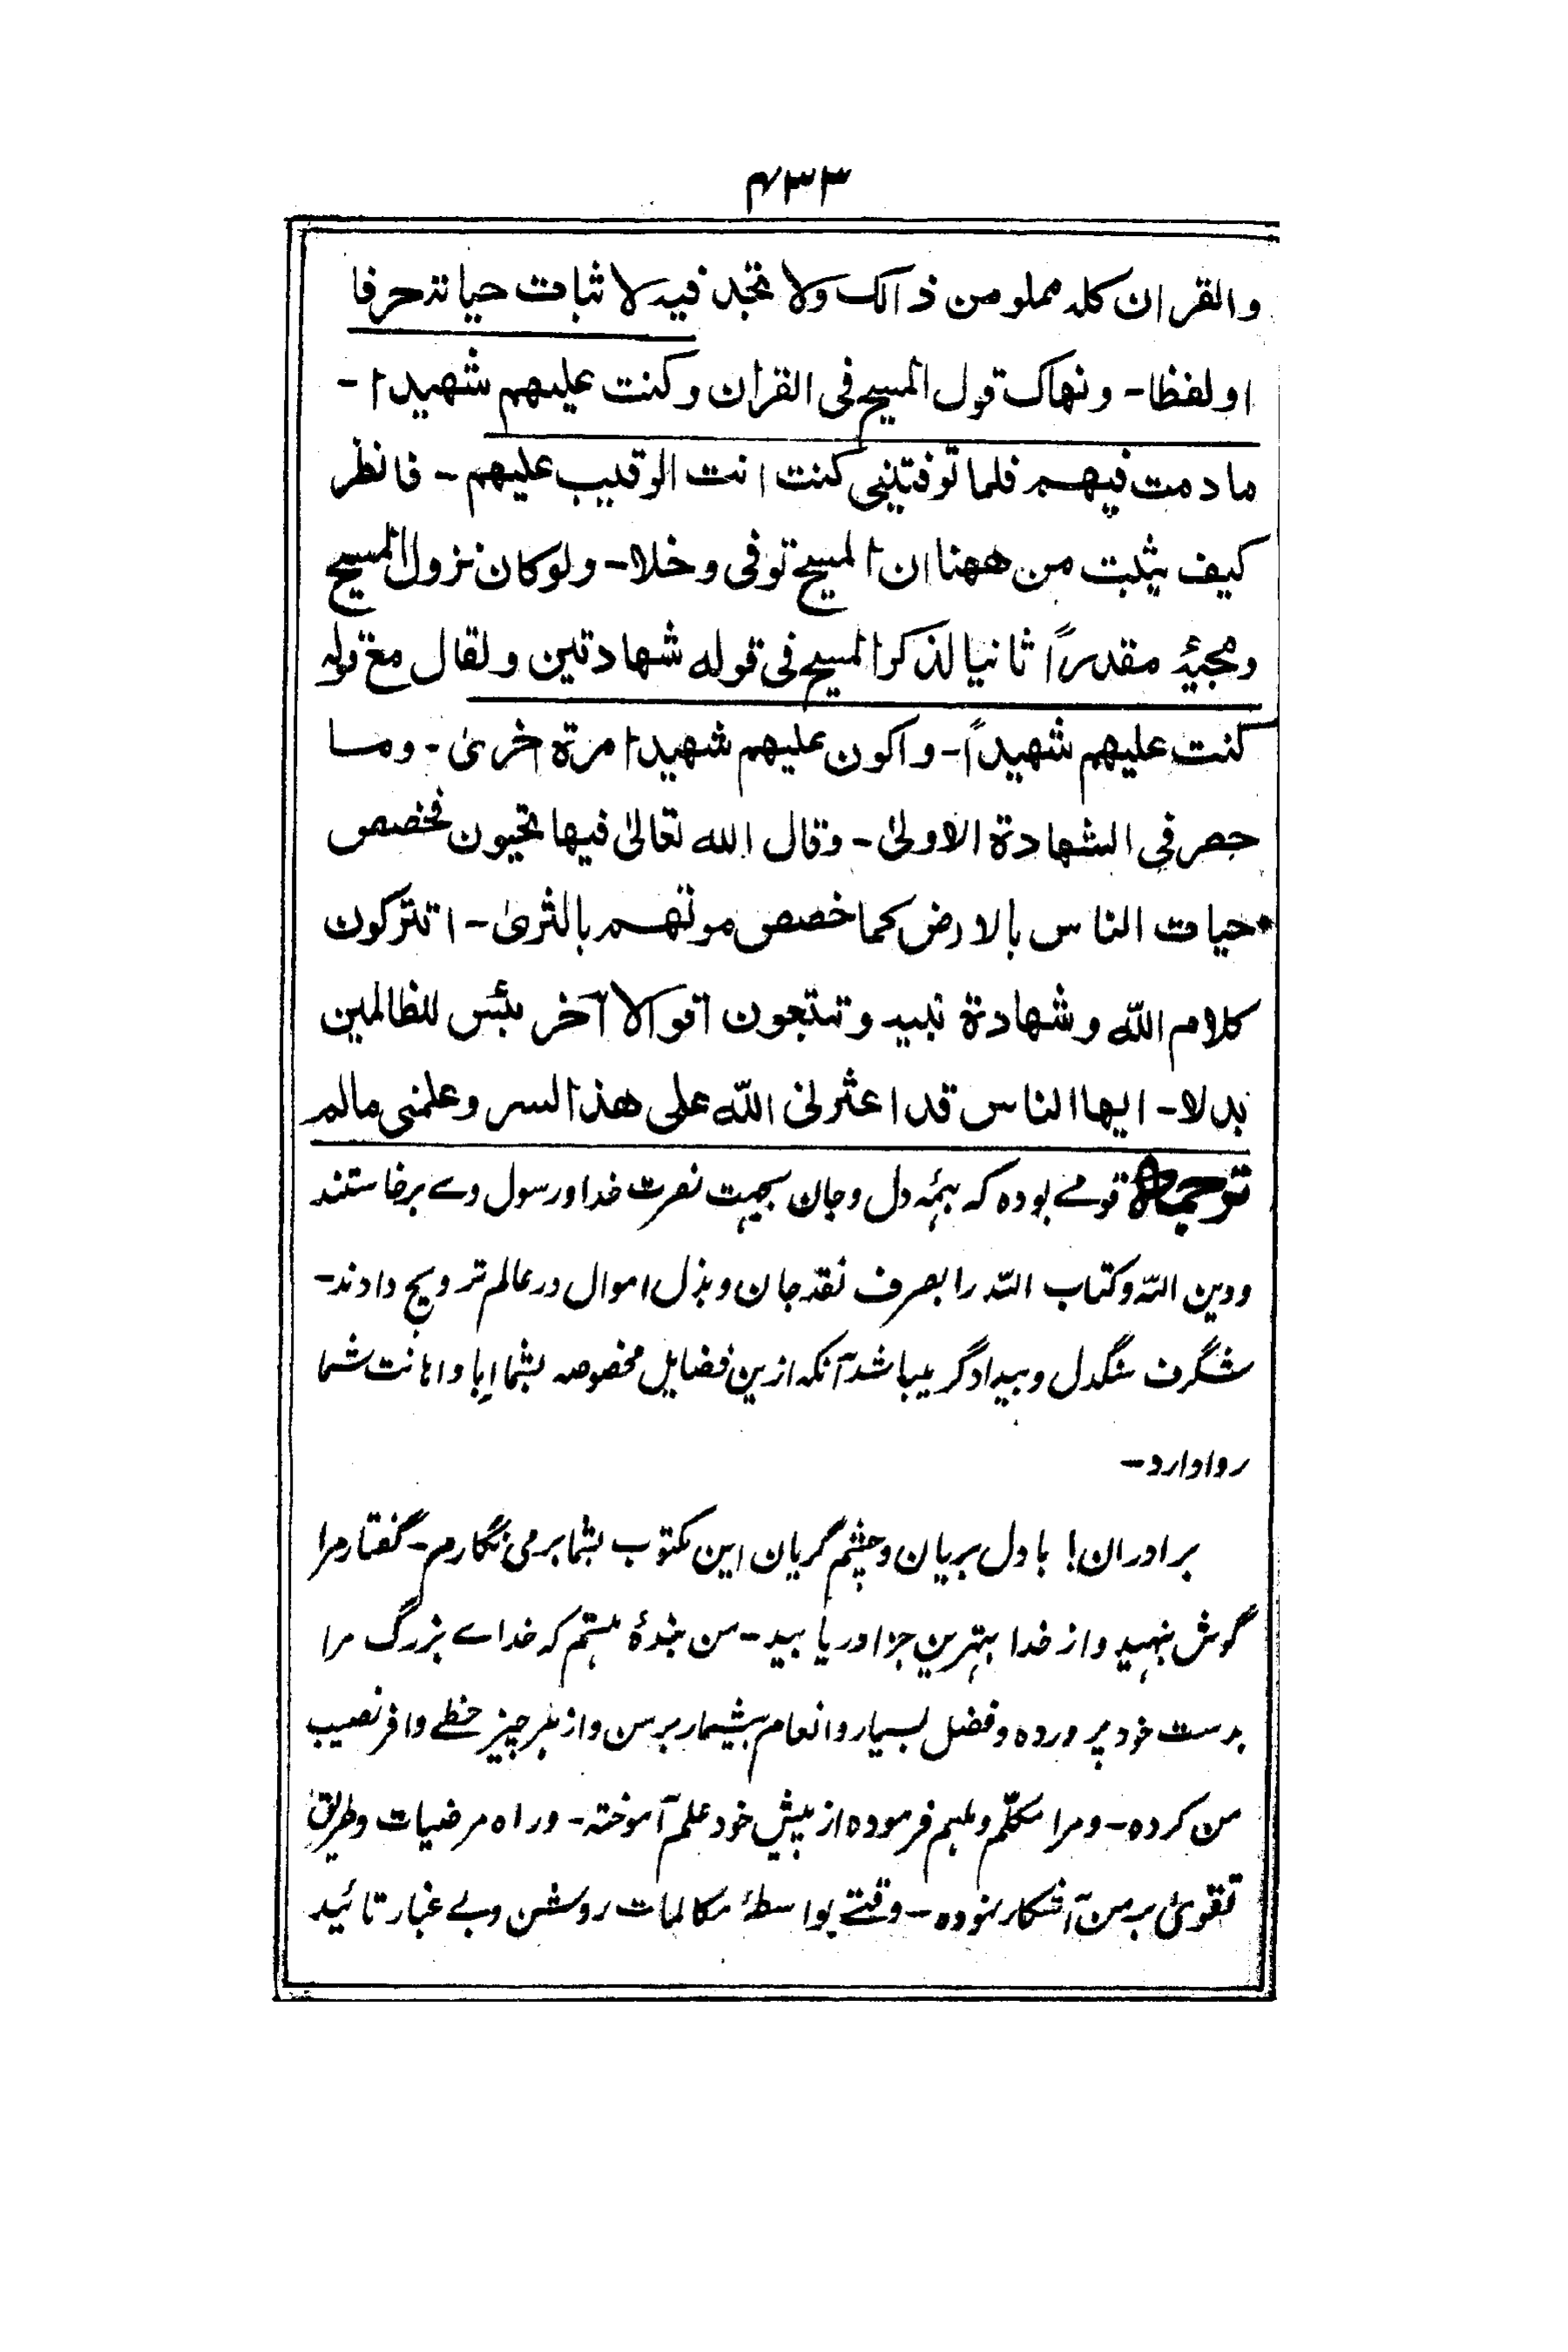 ۴۳۳
والقران كله مملو من ذالك ولا تجد فيه لاثبات حياته حرفا
او لفظا - ونهاك قول المسيح فى القرأن وكنت عليهم شهيدا -
ما دمت فيهم فلما توفيتنى كنت انت الرقيب عليهم - فانظر
كيف يثبت من ههنا ان المسيح توفى وخلا - ولو كان نزول المسيح
ومجيئه مقدراً ثانيا لذكر المسيح فى قوله شهادتين ولقال مع قوله
كنت عليهم شهيداً - واكون عليهم شهيدا مرة اخرى - وما
حصر فى الشهادة الاولىٰ - وقال الله تعالىٰ فيها تحيون فخصص
حيات الناس بالارض كما خصص موتهم بالثرىٰ - اتتركون
كلام اللّٰه وشهادة نبيه وتتبعون اقوالا آخر بئس للظالمين
بدلا - ايها الناس قد اعثرنى اللّٰه على هذا السر وعلمنى مالم
ترجمہ قومے بودہ کہ بہمہ دل و جان بجہت نصرت خدا و رسول وے برخاستند
ودین اللہ و کتاب اللہ را بصرف نقد جان و بذل اموال در عالم ترویج دادند -
شگرف سنگدل و بیدادگر میباشد آنکہ ازین فضایل مخصوصہ بشما ابا و اہانت شما
روا دارد -
برادران! بادل بریان و چشم گریان این مکتوب بشما برمی نگارم - گفتار مرا
گوش بنہید و از خدا بہترین جزا دریابید - من بندۂ ہستم کہ خداے بزرگ مرا
بدست خود پروردہ و فضل بسیار و انعام بیشمار بر من و از ہر چیز حظے وافر نصیب
من کردہ - و مرا مکلّم و ملہم فرمودہ از پیش خود علم آموختہ - و راہ مرضیات و طریق
تقویٰ بر من آشکار نمودہ - وقتے بواسطۂ مکالمات روشن و بے غبار تائید